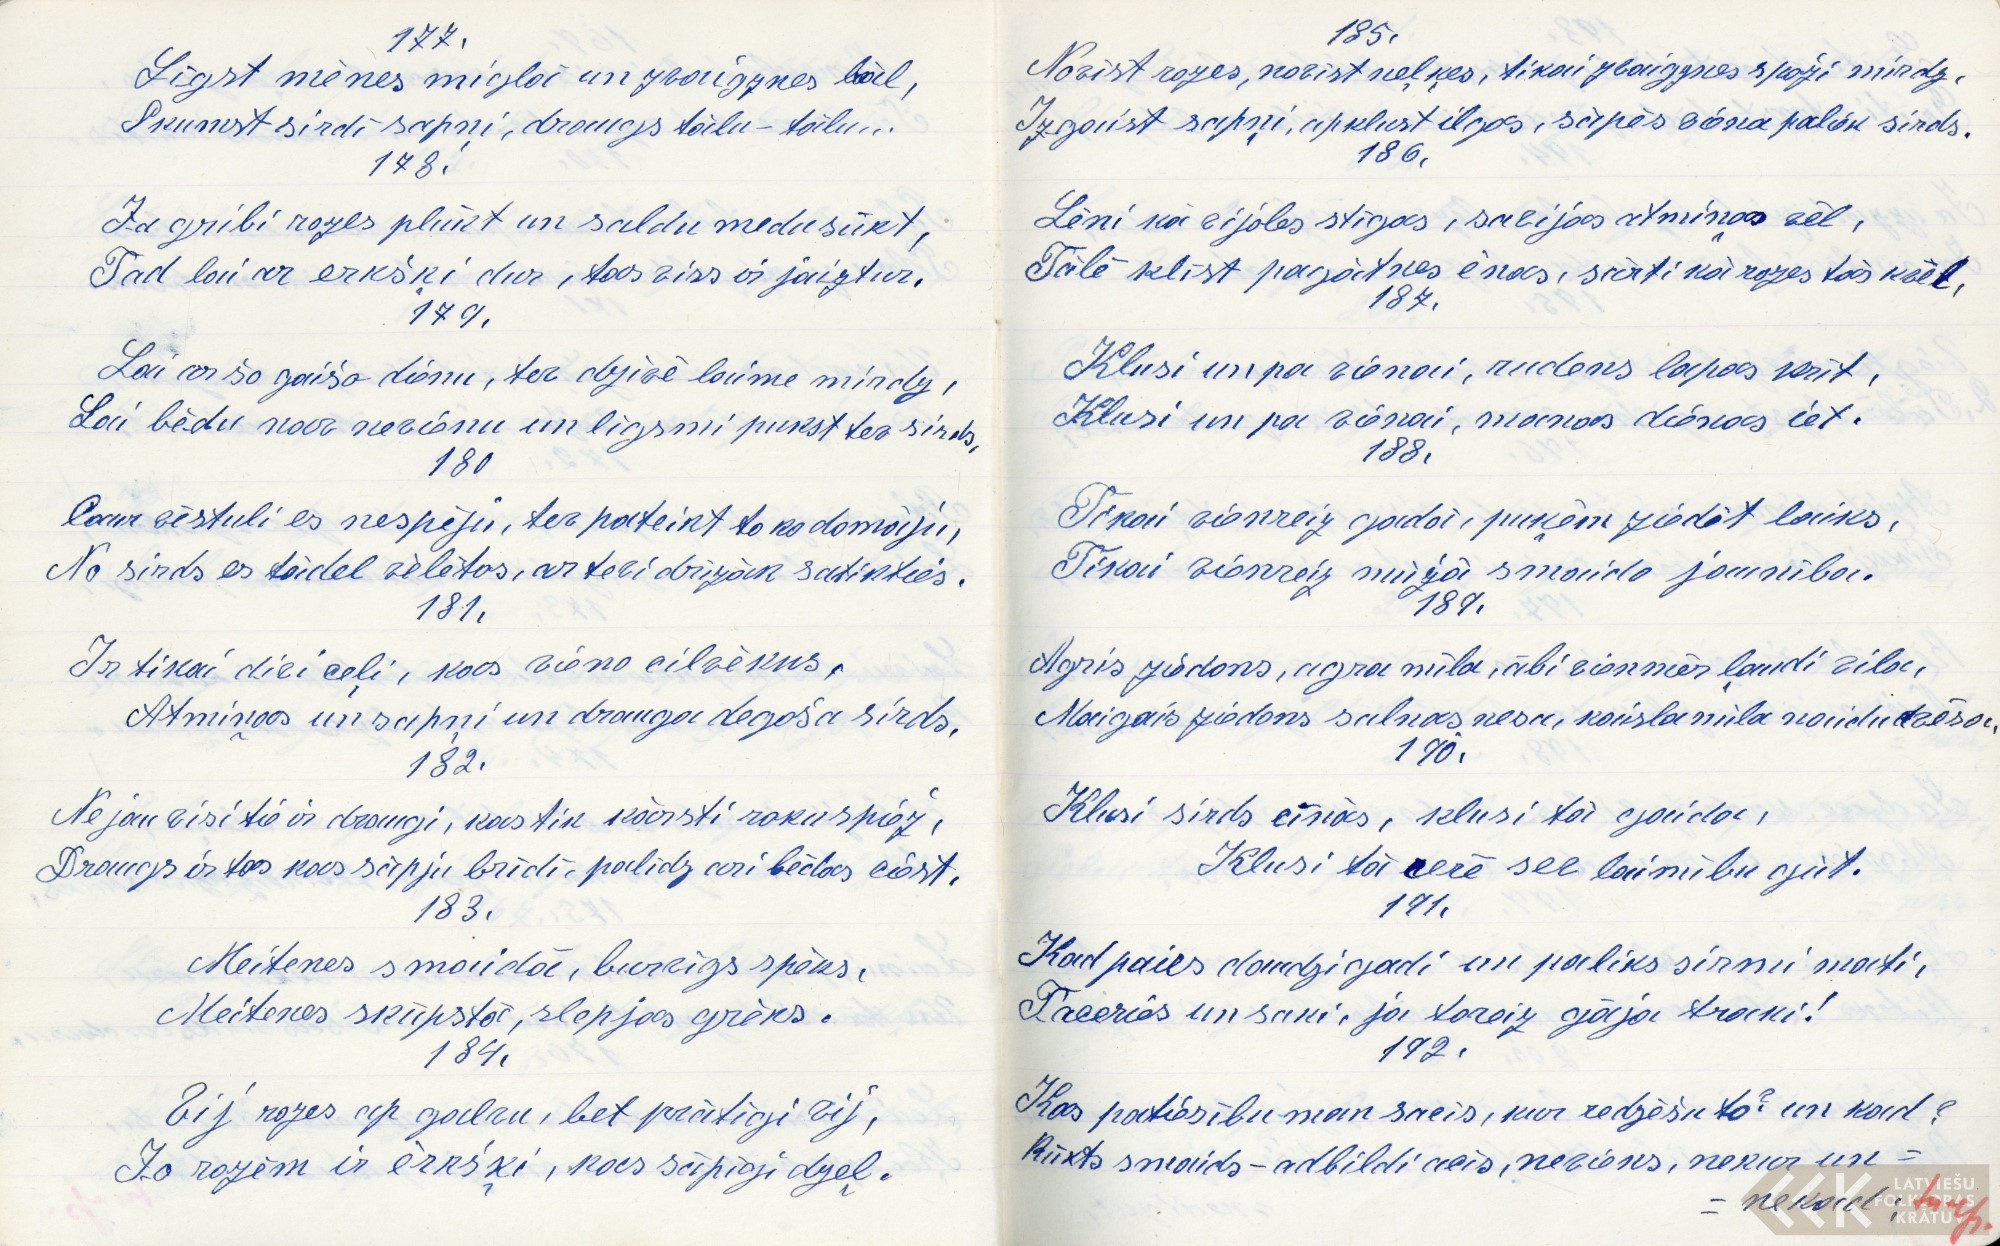 177.
Līgst mēnes miglā un zvaigznes bāl,
Skumst sirdī sapņi, draugs tālu - tālu...
178.
Ja gribi rozes plūkt un saldu medu sūkt,
Tad lai ar erkšķi dur, tas viss ir jāiztur.
179.
Lai ar šo gaišo dienu, tev dzīvē laime mirdz,
Lai bēdu nav nevienu un līgsmi pukst tev sirds,
180
Caur vēstuli es nespēju, tev pateikt to ko domāju,
No sirds es tādel vēlētos, ar tevi drīzāk satikties.
181.
Ir tikai divi ceļi, kas vieno cilvēkus,
Atmiņas un sapņi un drauga degoša sirds,
182.
Ne jau visi tie ir draugi, kas tik karsti roku spiež,
Draugs ir tas kas sāpju brīdī, palīdz arī bēdas ciest.
183.
Meitenes smaidā, burvīgs spēks,
Meitenes skūpstā, slepjas grēks.
184.
Vij rozes ap galvu, bet prātīgi vij,
Jo rozēm ir ērkšķi, kas sāpīgi dzeļ.
185.
Novīst rozes, novīst neļķes, tikai zvaigznes spoži mirdz,
Izgaist sapņi, apklust ilgas, sāpēs viena paliek sirds.
186.
Lēni kā vijoles stīgas, savijas atmiņas vēl,
Tālē klīst pagātnes ēnas, sārti kā rozes tās kvēl,
187.
Klusi un pa vienai, rudens lapas krīt,
Klusi un pa vienai, manas dienas iet.
188.
Tikai vienreiz gadā, puķēm ziedēt laiks,
Tikai vienreiz mūžā smaida jaunība.
189.
Agris ziedons, agra mīla, abi vienmēr ļaudi vila,
Maigais ziedons salnas nesa, kaisla mīla naidu dvēsa,
190.
Klusi sirds cīnās, klusi tā gaida,
Klusi tā cerē sev laimību gūt.
191.
Kad paies daudzi gadi un paliks sirmi mati,
Taceries un saki, ja toreiz gāja traki!
192.
Kas patiesību man sacīs, kur redzēšu to? un kad?
Rūkts smaids - adbildi acīs, neviens, nekur un =
= nekad.
LATVIEŠU
FOLKLORAS
KRĀTUVE